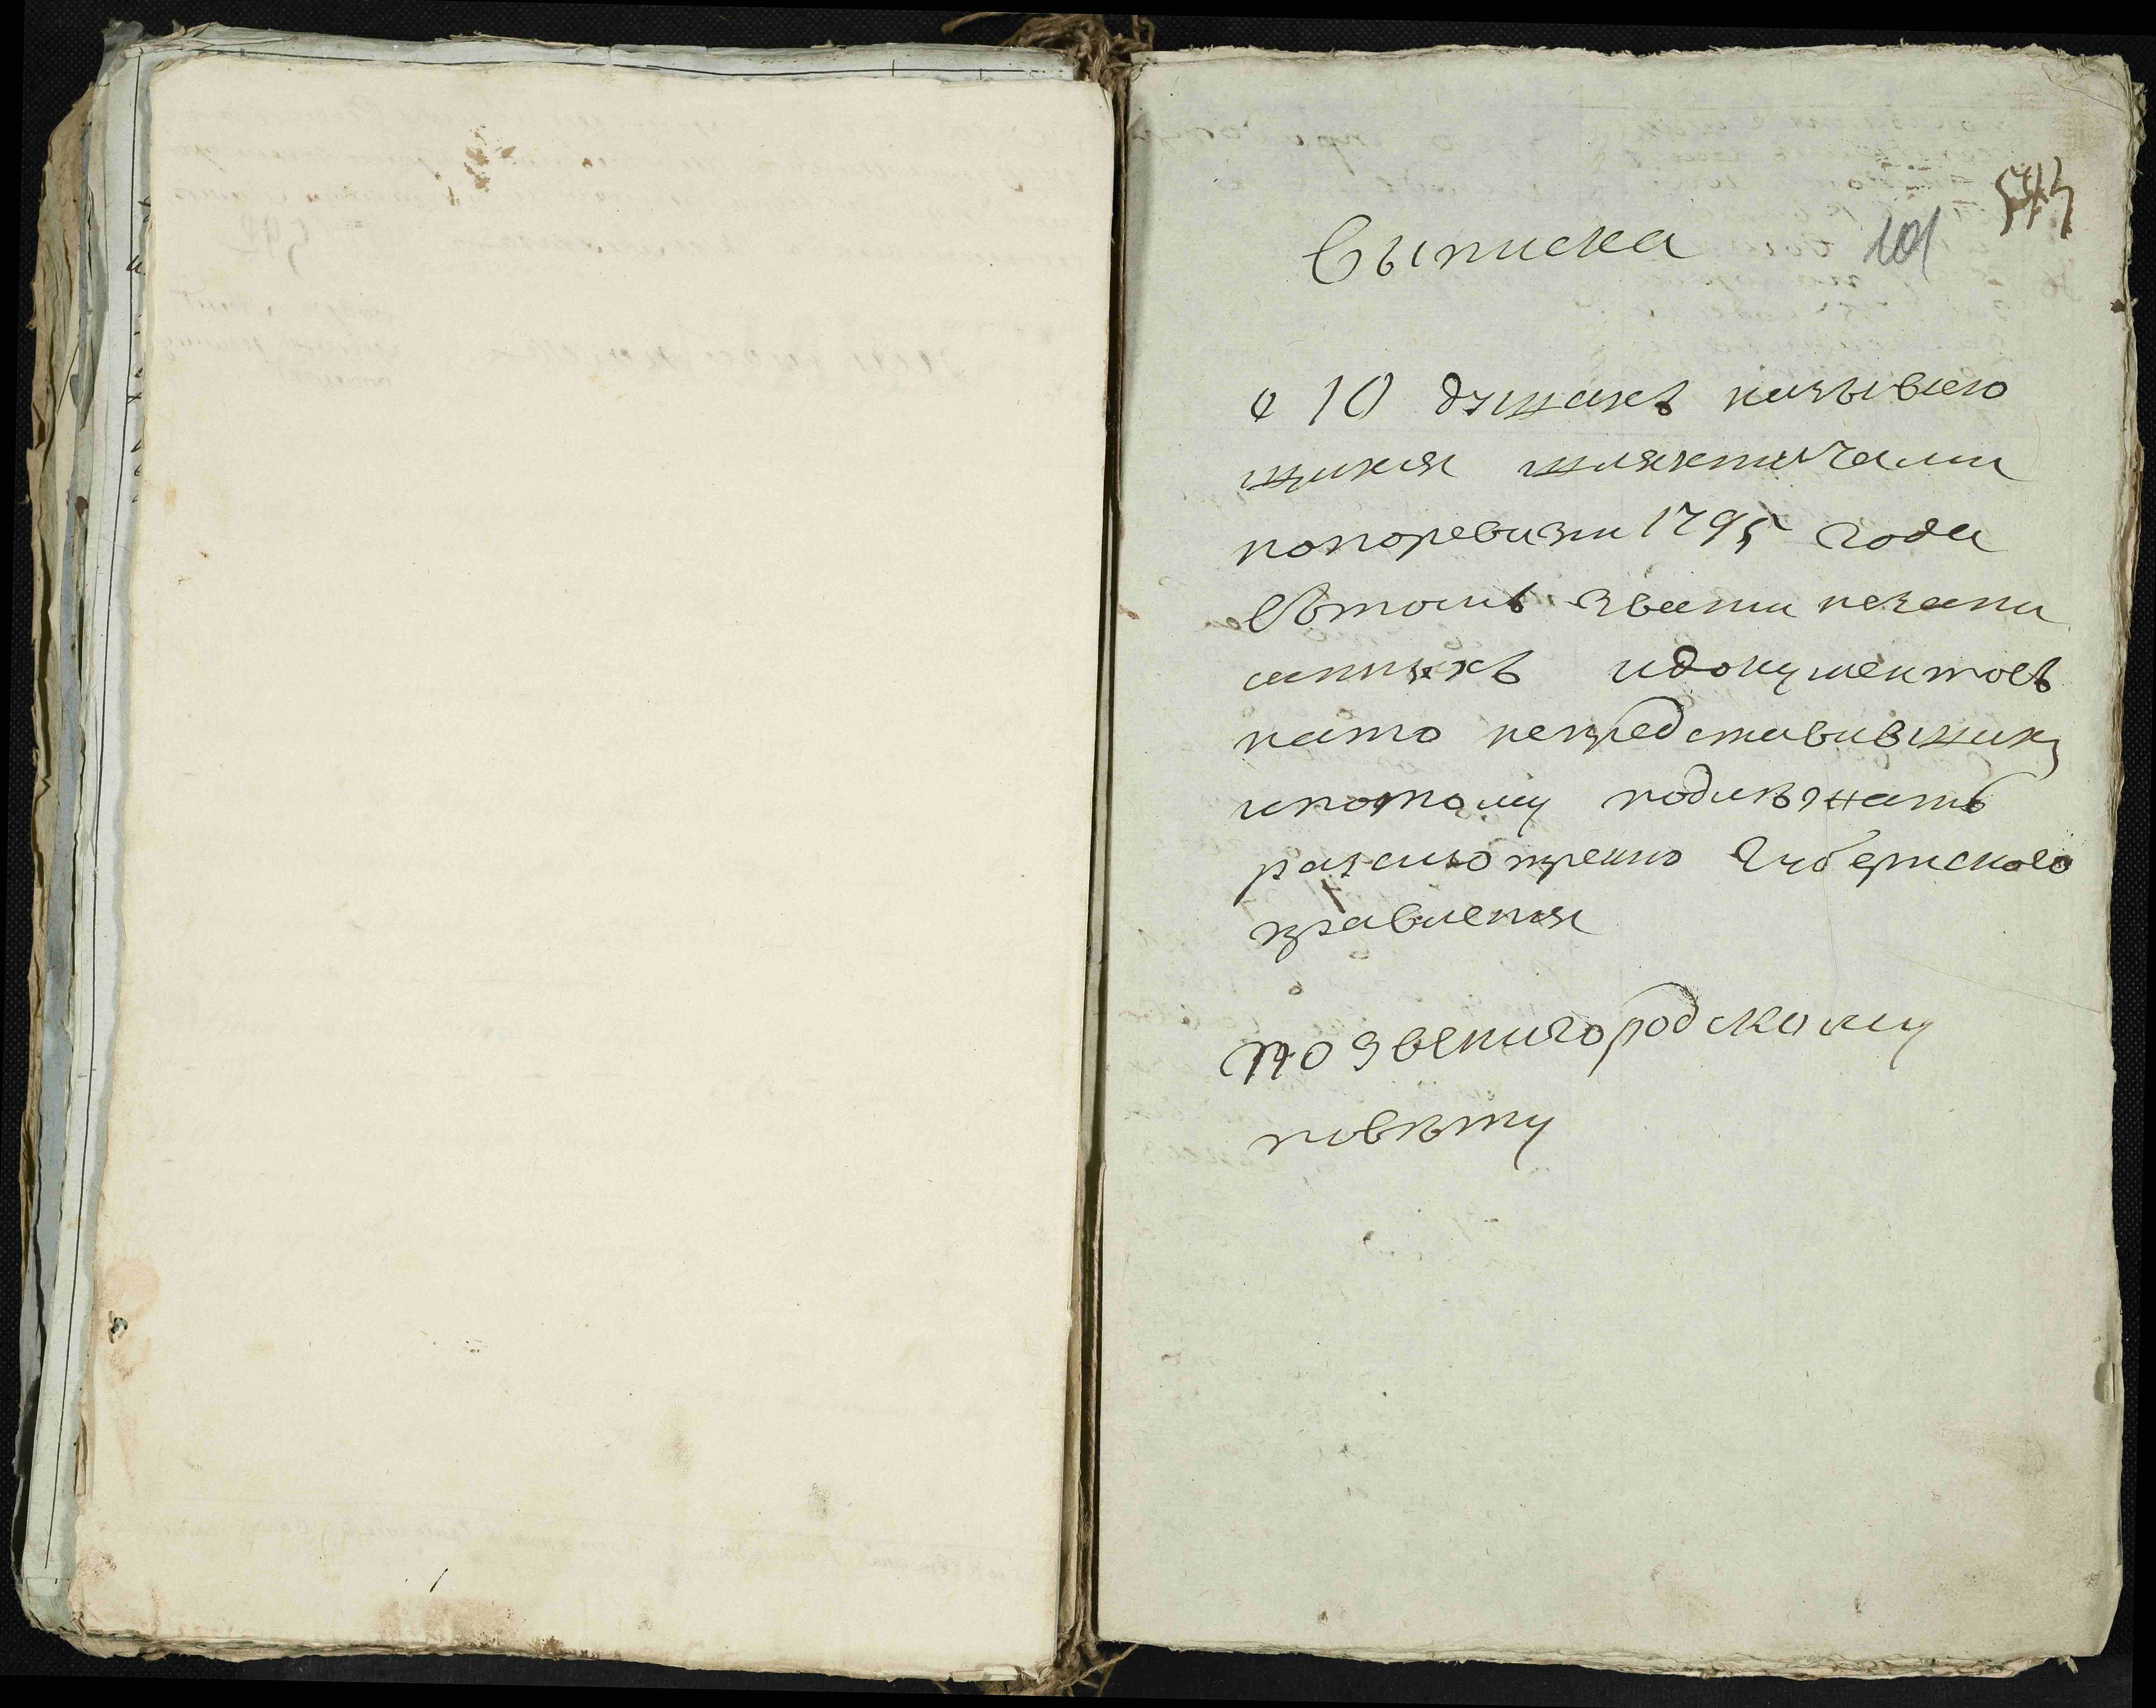 Выписка
101
о 10 душахъ называю
щихся шляхтичами
попоревизіи 1795 года
Вътомъ званіи незапи
санныхъ идокументовъ
нато непредставившихъ
ипотому подлѣжатъ
разсмотренію Губернскаго
правленія
по Звенигородскому
повѣту